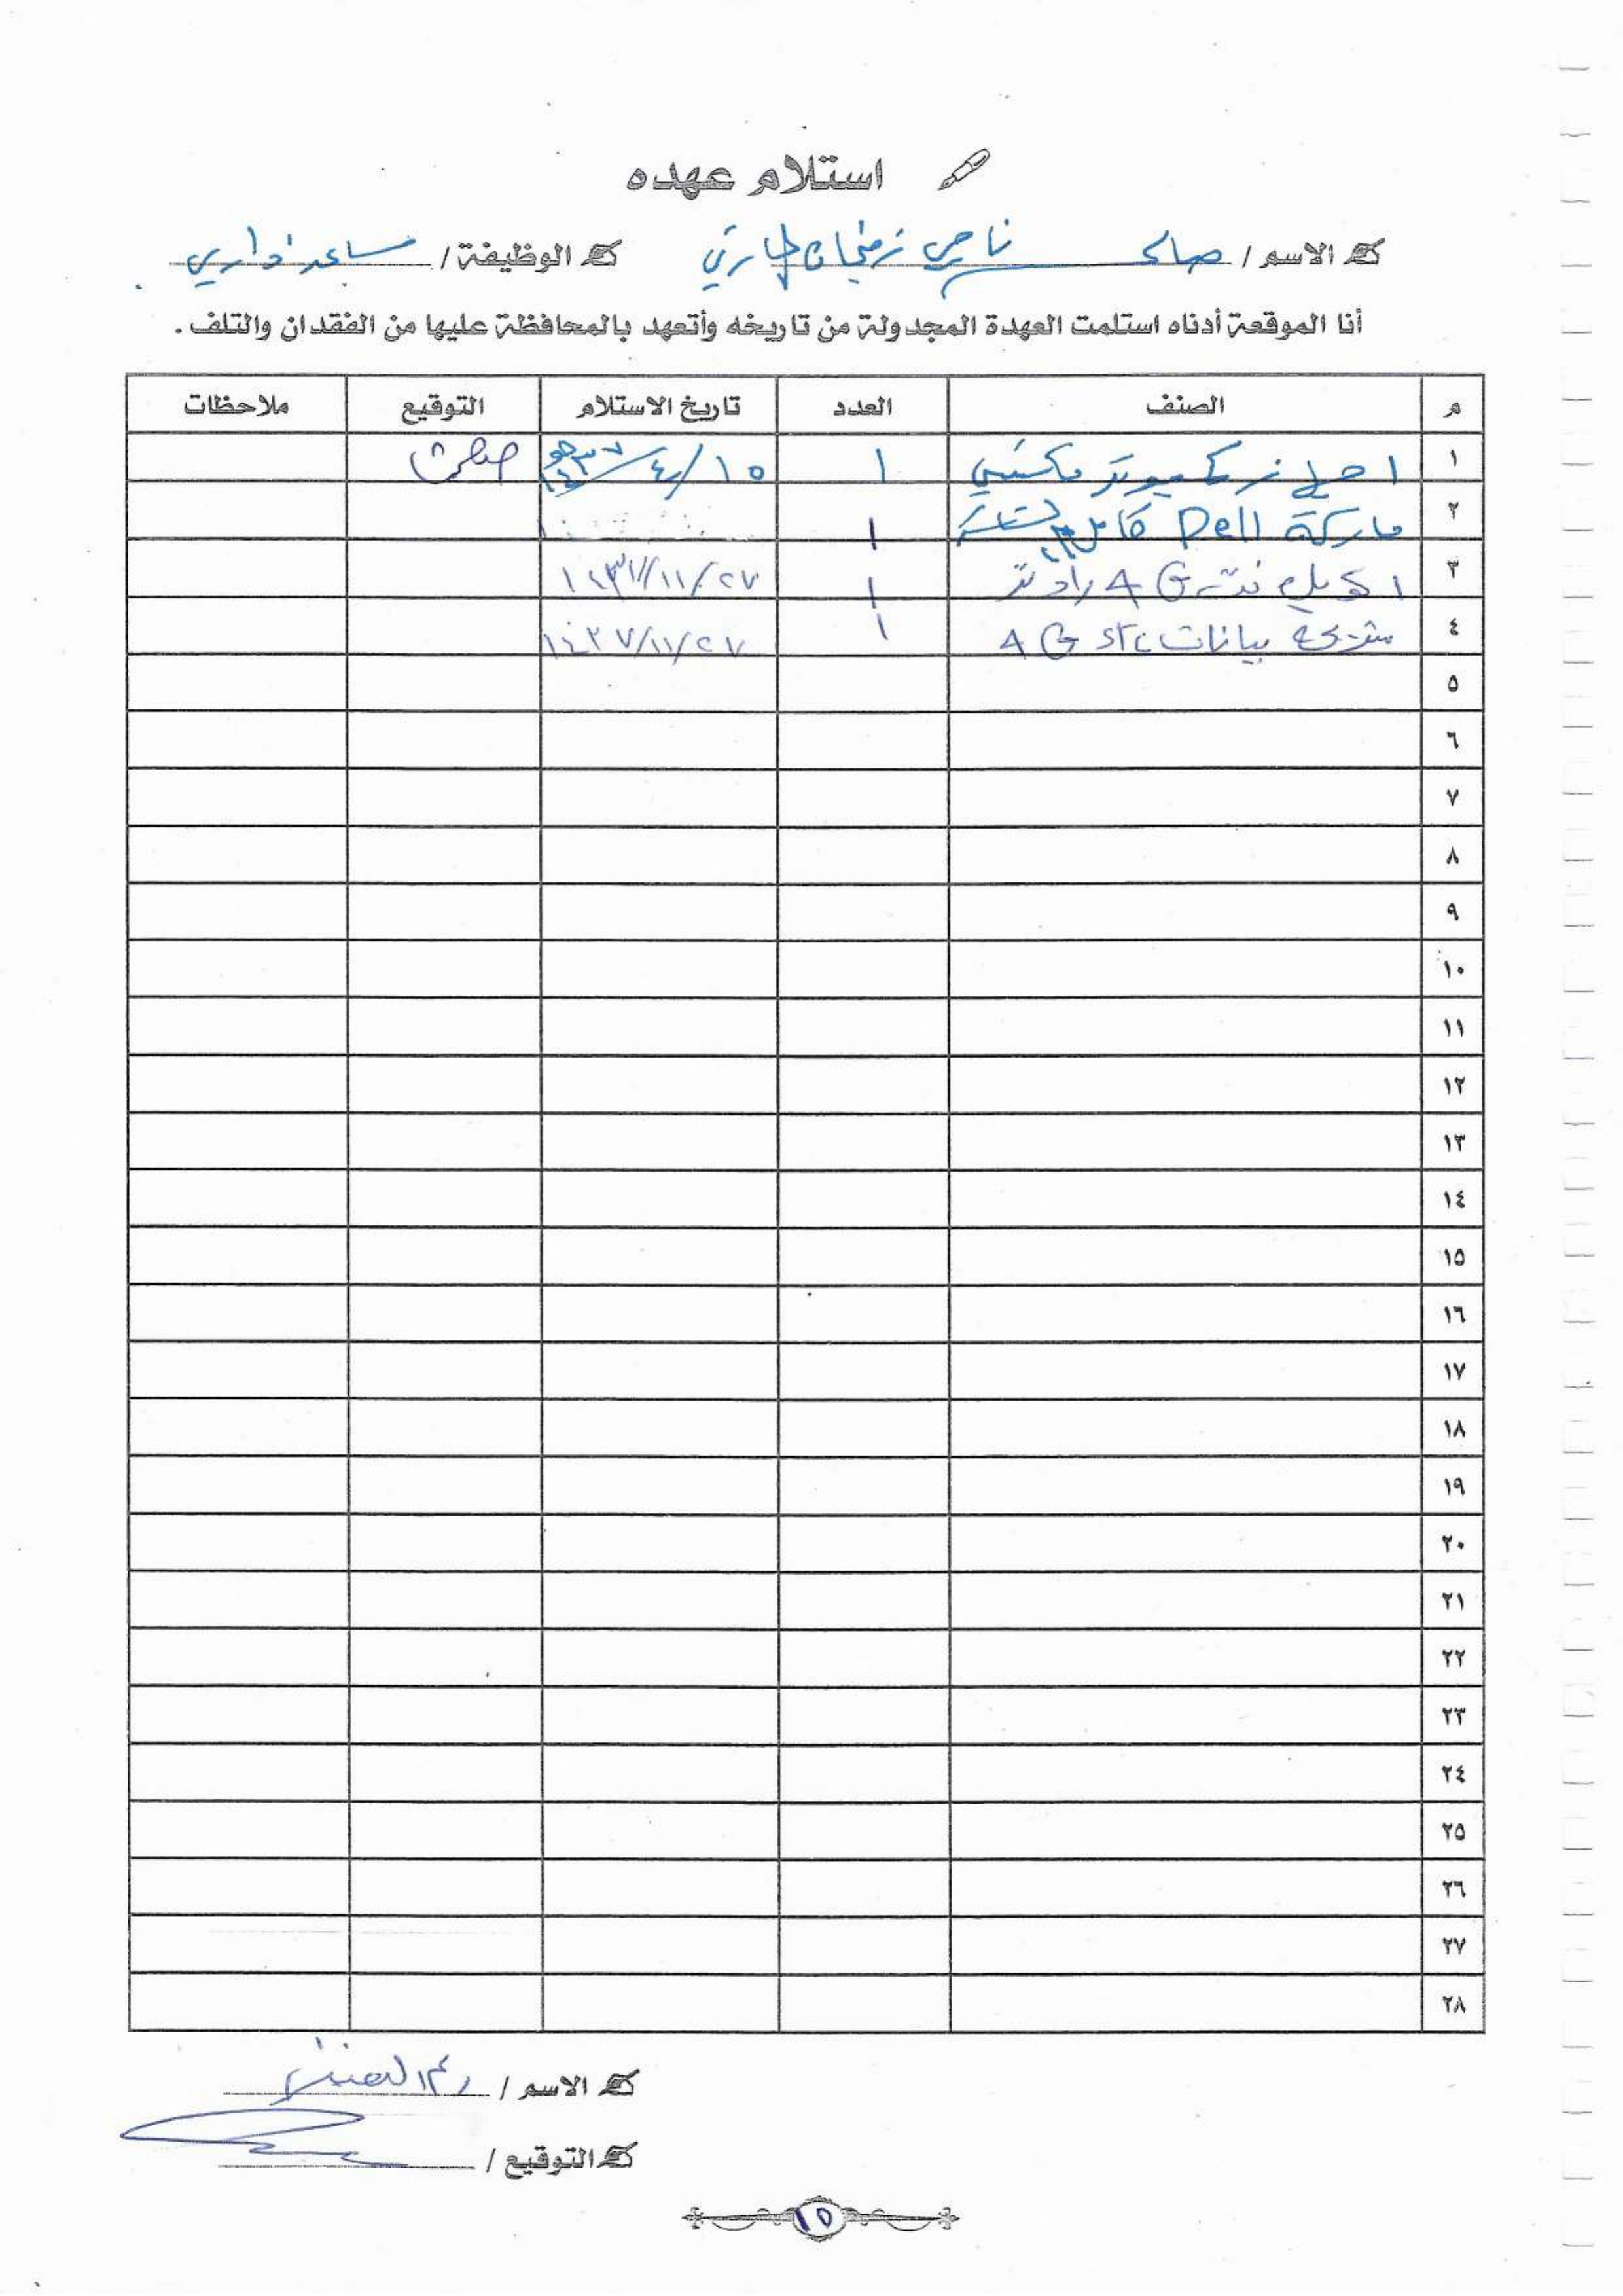 استلام عهده
الاسم / صالح ناجي الحارثي الوظيفة / مساعد اداري
أنا الموقعة أدناه استلمت العهدة المجدولة من تاريخه وأتعهد بالمحافظة عليها من الفقدان والتلف .
م الصنف العدد تاريخ الاستلام التوقيع ملاحظات
١ كمبيوتر مكتبي ١ ١٥/٤/١٤٣٧هـ
٢ ماركة Dell كامل ١
٣ نت 4G راوتر ١ ٢٧/١١/١٤٣٧
٤ شريحة بيانات stc 4G ١ ٢٧/١١/١٤٣٧
٥
٦
٧
٨
٩
١٠
١١
١٢
١٣
١٤
١٥
١٦
١٧
١٨
١٩
٢٠
٢١
٢٢
٢٣
٢٤
٢٥
٢٦
٢٧
٢٨
الاسم /
التوقيع /
١٥